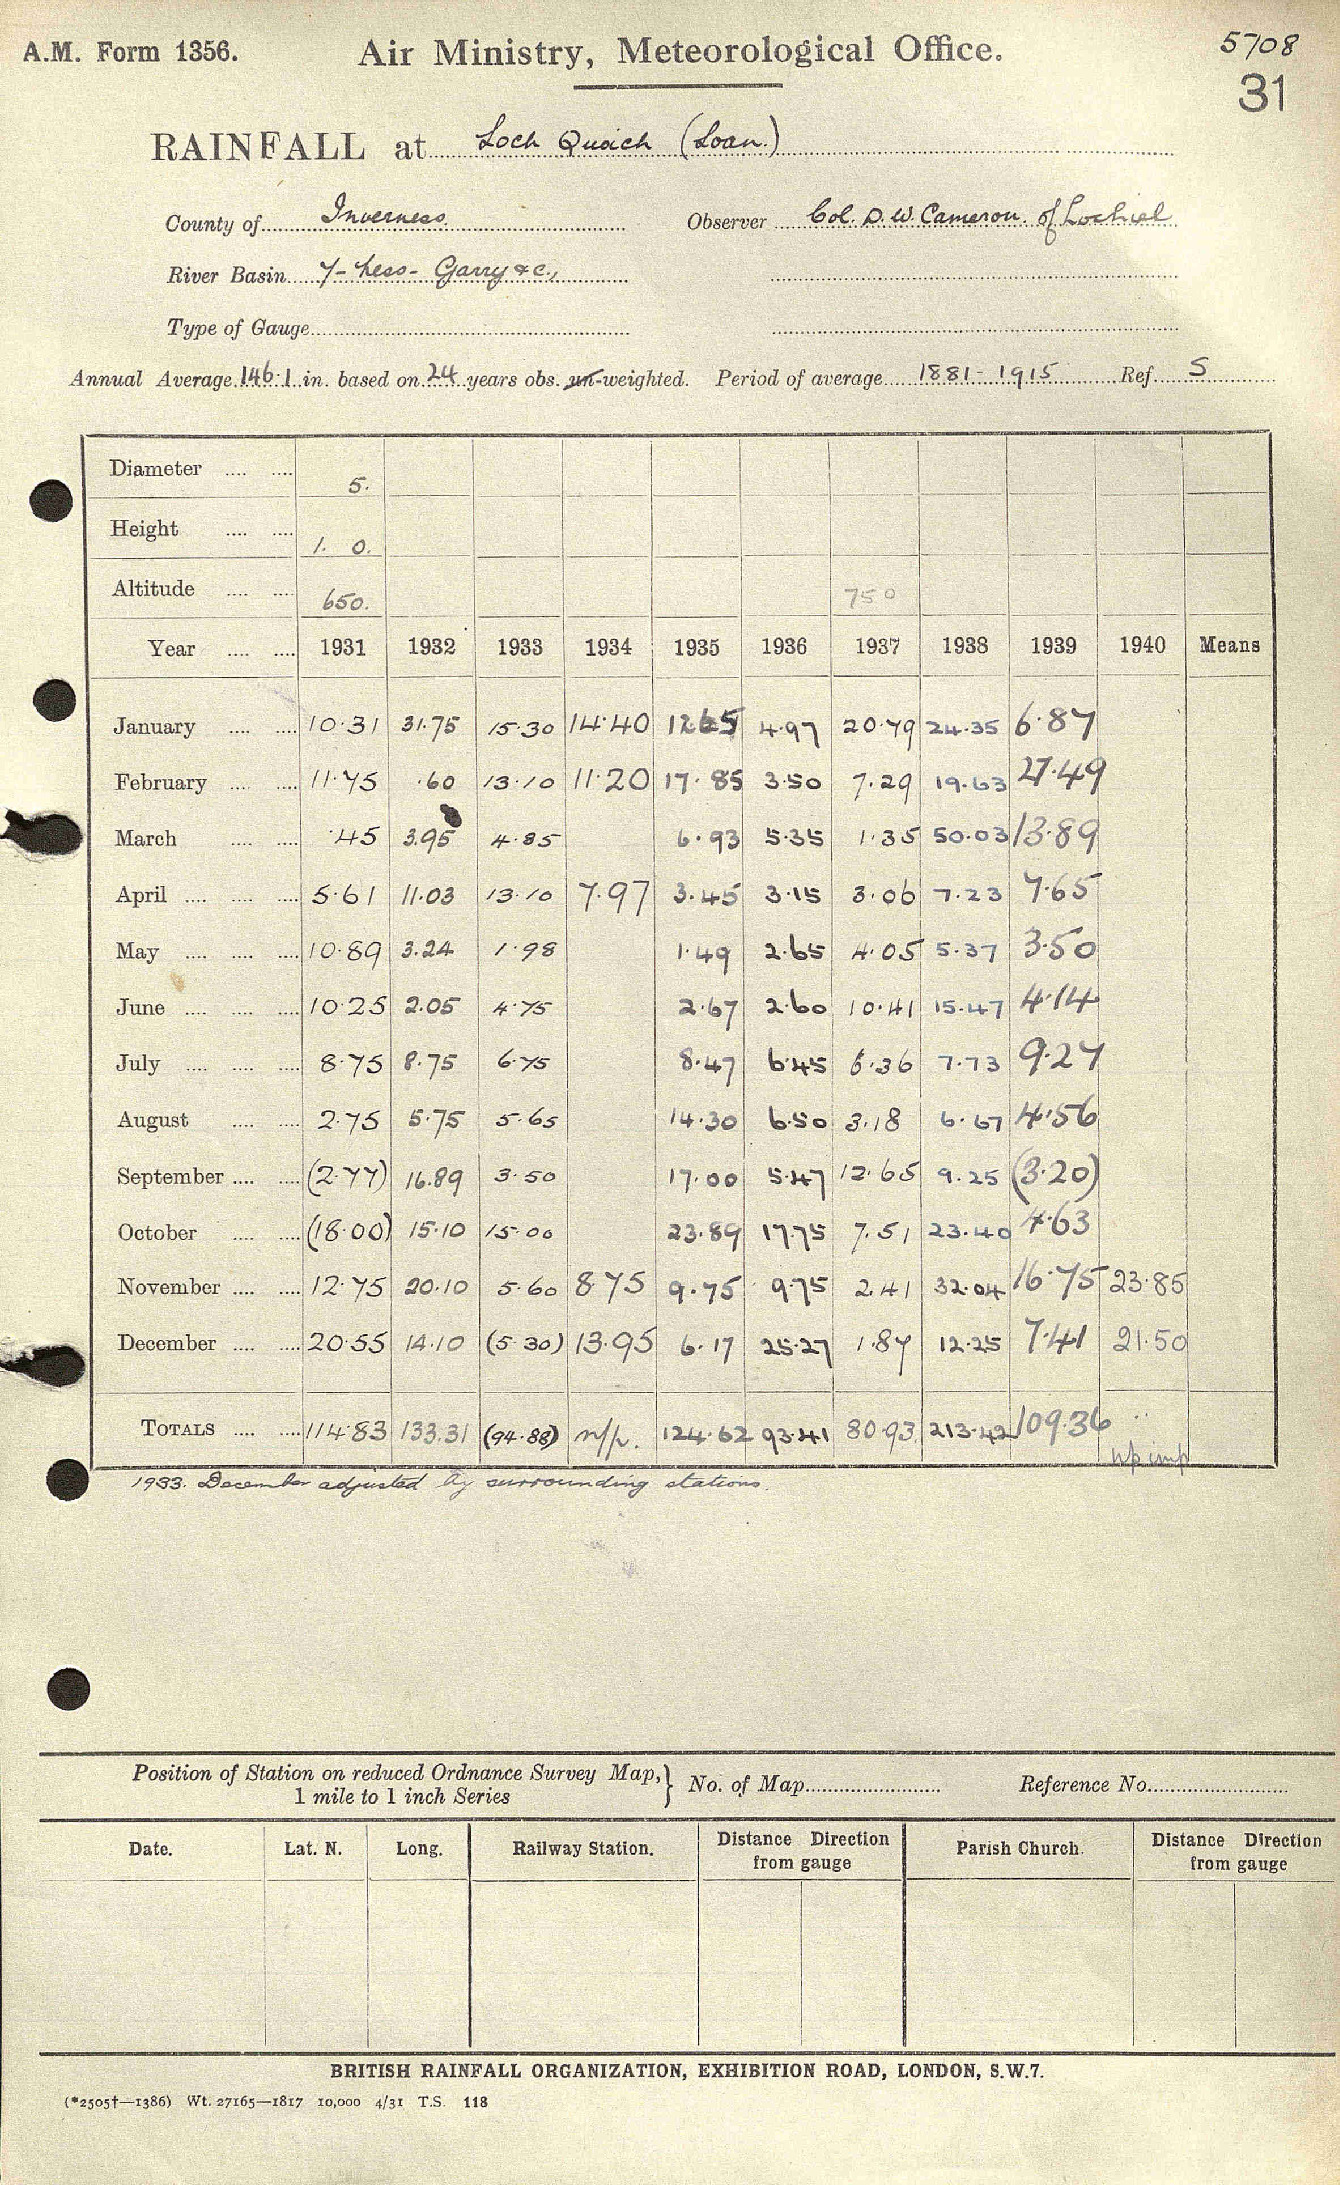 A.M. Form 1356. Air Ministry, Meteorological Office. 5708
31
RAINFALL at Loch Quoich (Loan.)
County of Inverness. Observer Col. D. W. Cameron. of Lochiel
River Basin 7- Ness- Garry &c.,
Type of Gauge
Annual Average 146.1 in. based on 24 years obs. un-weighted. Period of average 1881-1915 Ref. S
Diameter 5.
Height 1. 0.
Altitude 650. 750
Year 1931 1932 1933 1934 1935 1936 1937 1938 1939 1940 Means
January 10.31 31.75 15.30 14.40 12.65 4.97 20.79 24.35 6.87
February 11.75 .60 13.10 11.20 17.85 3.50 7.29 19.63 27.49
March .45 3.95 4.85 6.93 5.35 1.35 50.03 13.89
April 5.61 11.03 13.10 7.97 3.45 3.15 3.06 7.23 7.65
May 10.89 3.24 1.98 1.49 2.65 4.05 5.37 3.50
June 10.25 2.05 4.75 2.67 2.60 10.41 15.47 4.14
July 8.75 8.75 6.75 8.47 6.45 6.36 7.73 9.27
August 2.75 5.75 5.65 14.30 6.50 3.18 6.67 4.56
September (2.77) 16.89 3.50 17.00 5.47 12.65 9.25 (3.20)
October (18.00) 15.10 15.00 23.89 17.75 7.51 23.40 4.63
November 12.75 20.10 5.60 8.75 9.75 9.75 2.41 32.04 16.75 23.85
December 20.55 14.10 (5.30) 13.95 6.17 25.27 1.87 12.25 7.41 21.50
TOTALS 114.83 133.31 (94.88) n/p. 124.62 93.41 80.93 213.42 109.36
n/p imp
1933. December adjusted by surrounding stations.
Position of Station on reduced Ordnance Survey Map, No. of Map Reference No.
1 mile to 1 inch Series
Date. Lat. N. Long. Railway Station. Distance Direction from gauge Parish Church. Distance Direction from gauge
BRITISH RAINFALL ORGANIZATION, EXHIBITION ROAD, LONDON, S.W.7.
(*2505†—1386) Wt. 27165—1817 10,000 4/31 T.S. 118